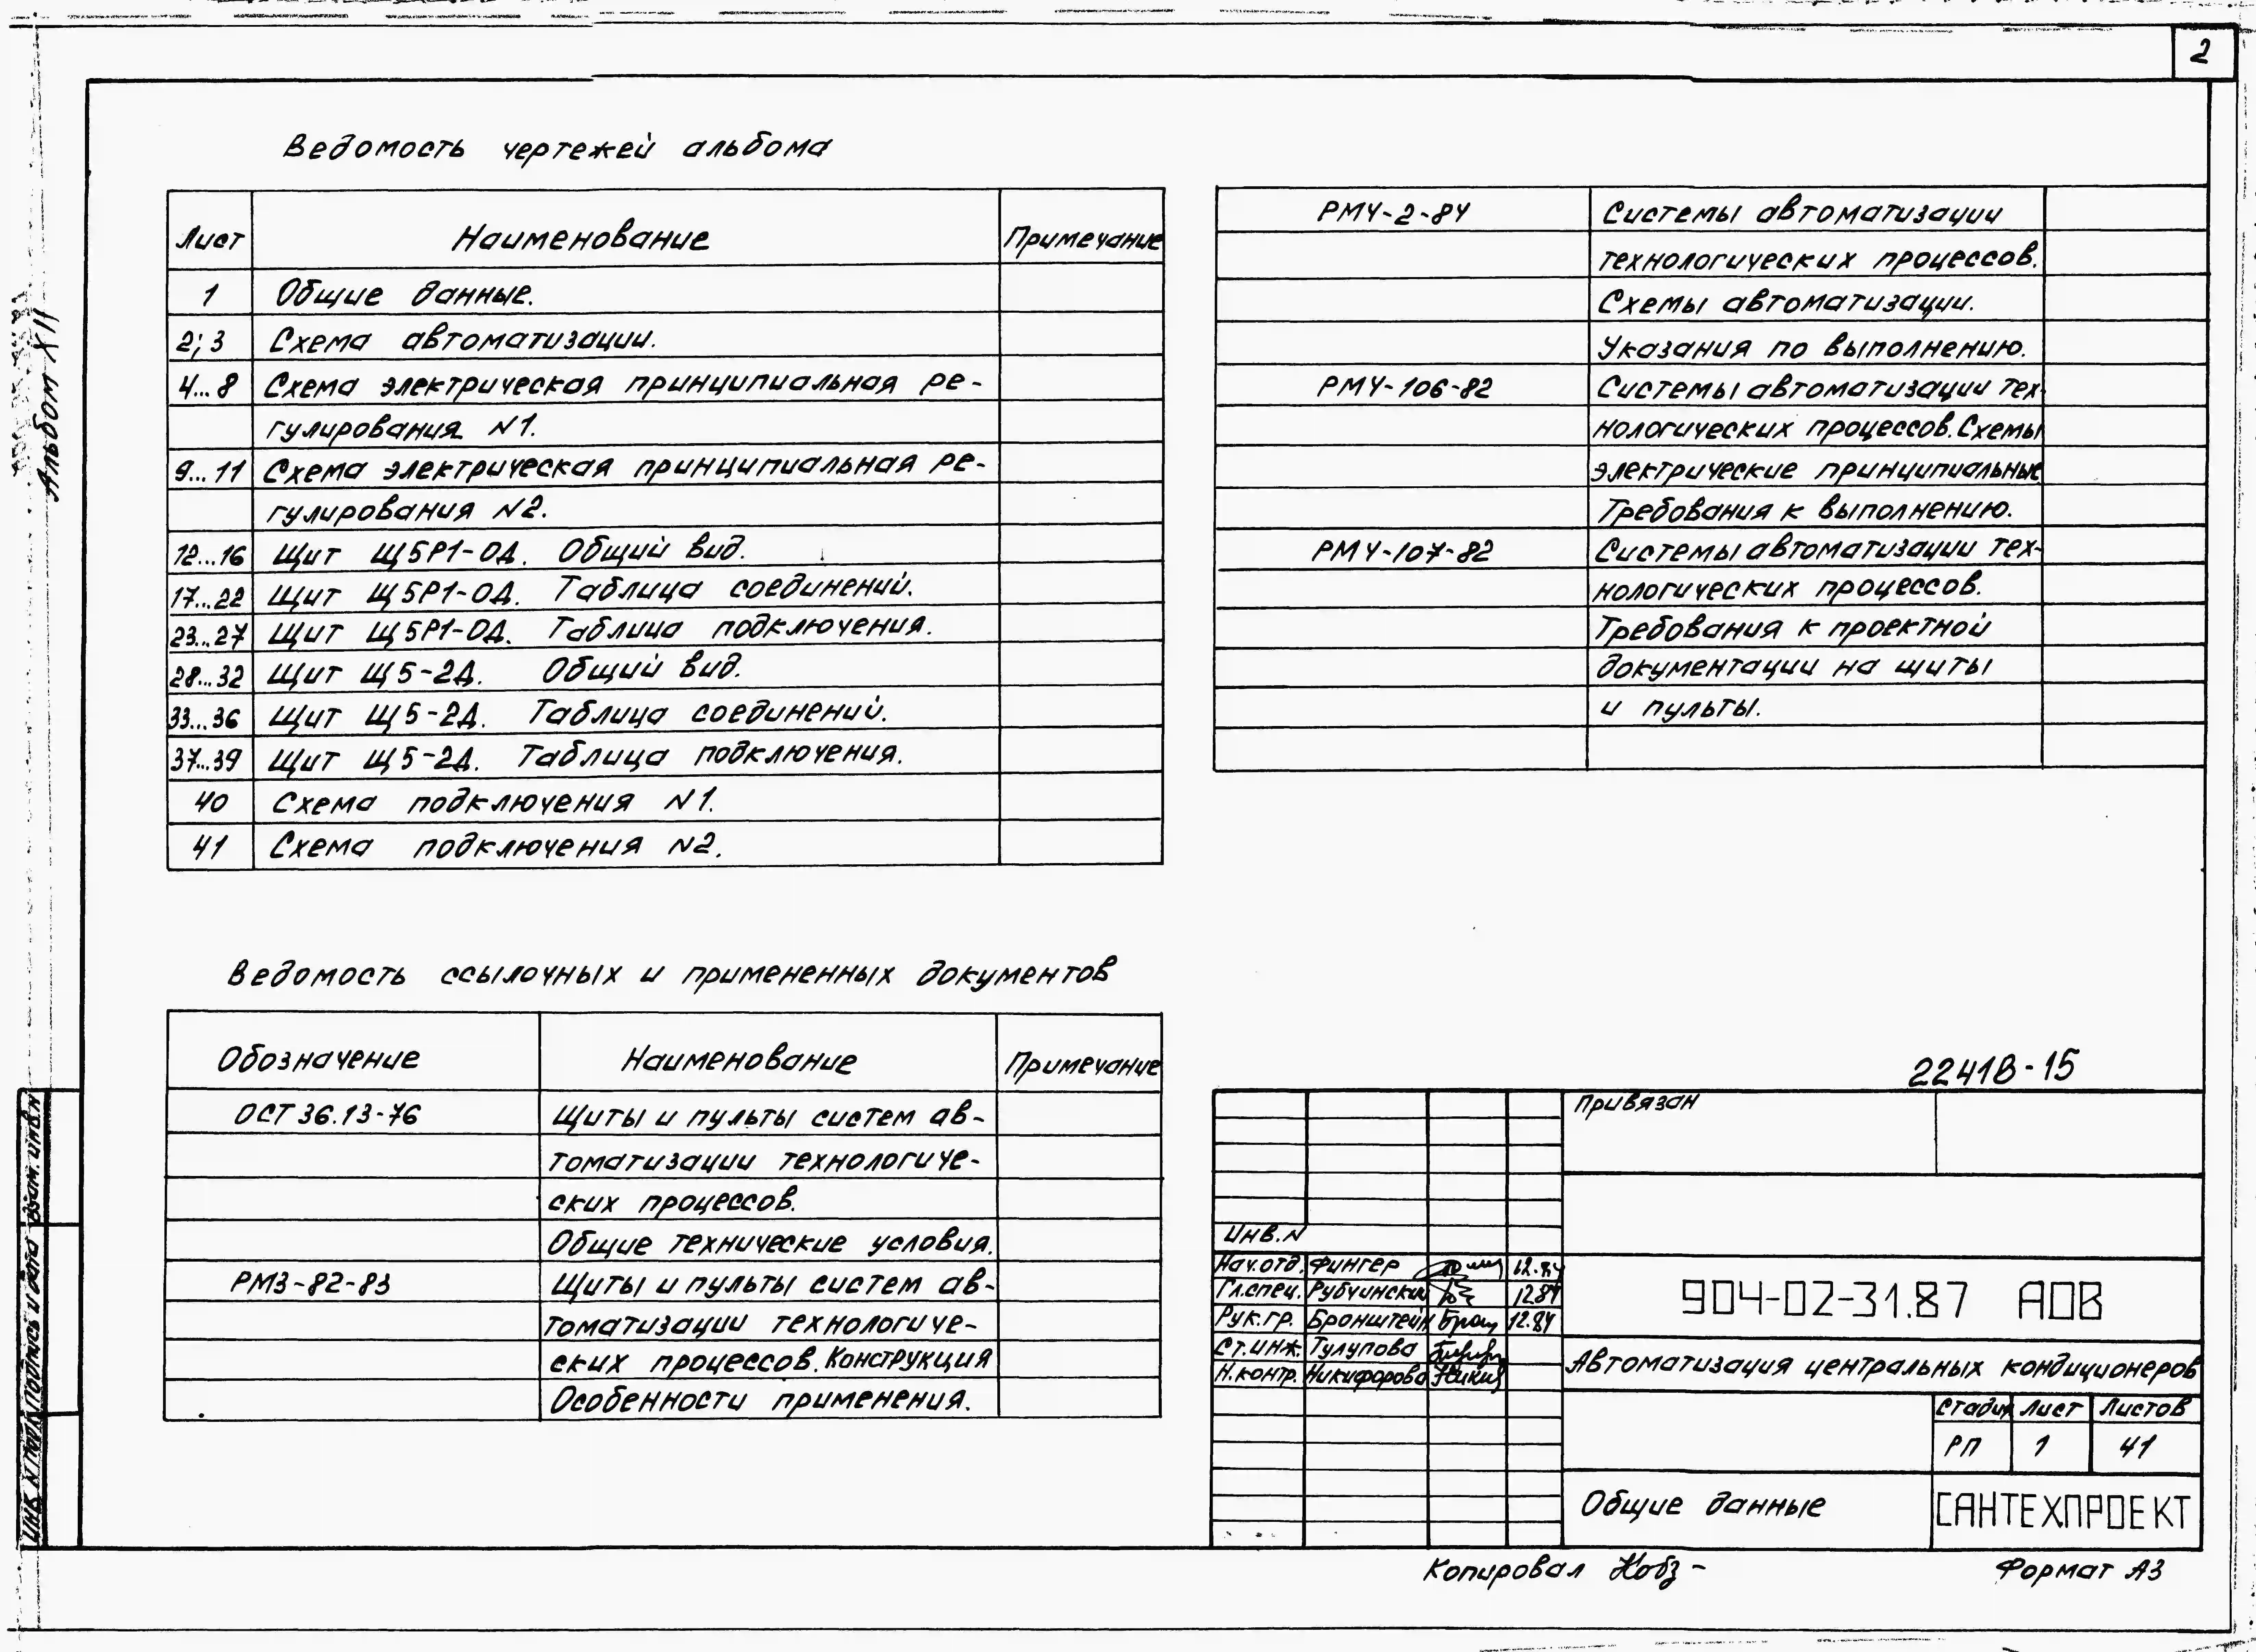 2
Альбом XII
Ведомость чертежей альбома
Лист Наименование Примечание
1 Общие данные.
2; 3 Схема автоматизации.
4...8 Схема электрическая принципиальная ре-
гулирования N1.
9...11 Схема электрическая принципиальная ре-
гулирования N2.
12...16 Щит Щ5Р1-0Д. Общий вид.
17...22 Щит Щ5Р1-0Д. Таблица соединений.
23...27 Щит Щ5Р1-0Д. Таблица подключения.
28...32 Щит Щ5-2Д. Общий вид.
33...36 Щит Щ5-2Д. Таблица соединений.
37...39 Щит Щ5-2Д. Таблица подключения.
40 Схема подключения N1.
41 Схема подключения N2.
Ведомость ссылочных и примененных документов
Обозначение Наименование Примечание
ОСТ 36.13-76 Щиты и пульты систем ав-
томатизации технологиче-
ских процессов.
Общие технические условия.
РМ3-82-83 Щиты и пульты систем ав-
томатизации технологиче-
ских процессов. Конструкция
Особенности применения.
РМ4-2-84 Системы автоматизации
технологических процессов.
Схемы автоматизации.
Указания по выполнению.
РМ4-106-82 Системы автоматизации тех-
нологических процессов. Схемы
электрические принципиальные
Требования к выполнению.
РМ4-107-82 Системы автоматизации тех-
нологических процессов.
Требования к проектной
документации на щиты
и пульты.
22418-15
Привязан
Инв. N
Нач.отд. Фингер 12.84
Гл.спец. Рубчинский 12.84
Рук.гр. Бронштейн 12.84
Ст.инж. Тулупова
Н.контр. Никифорова
904-02-31.87 АОВ
Автоматизация центральных кондиционеров
Стадия Лист Листов
РП 1 41
Общие данные
САНТЕХПРОЕКТ
Копировал
Формат А3
Инв. N подл. Подпись и дата Взам. инв. N